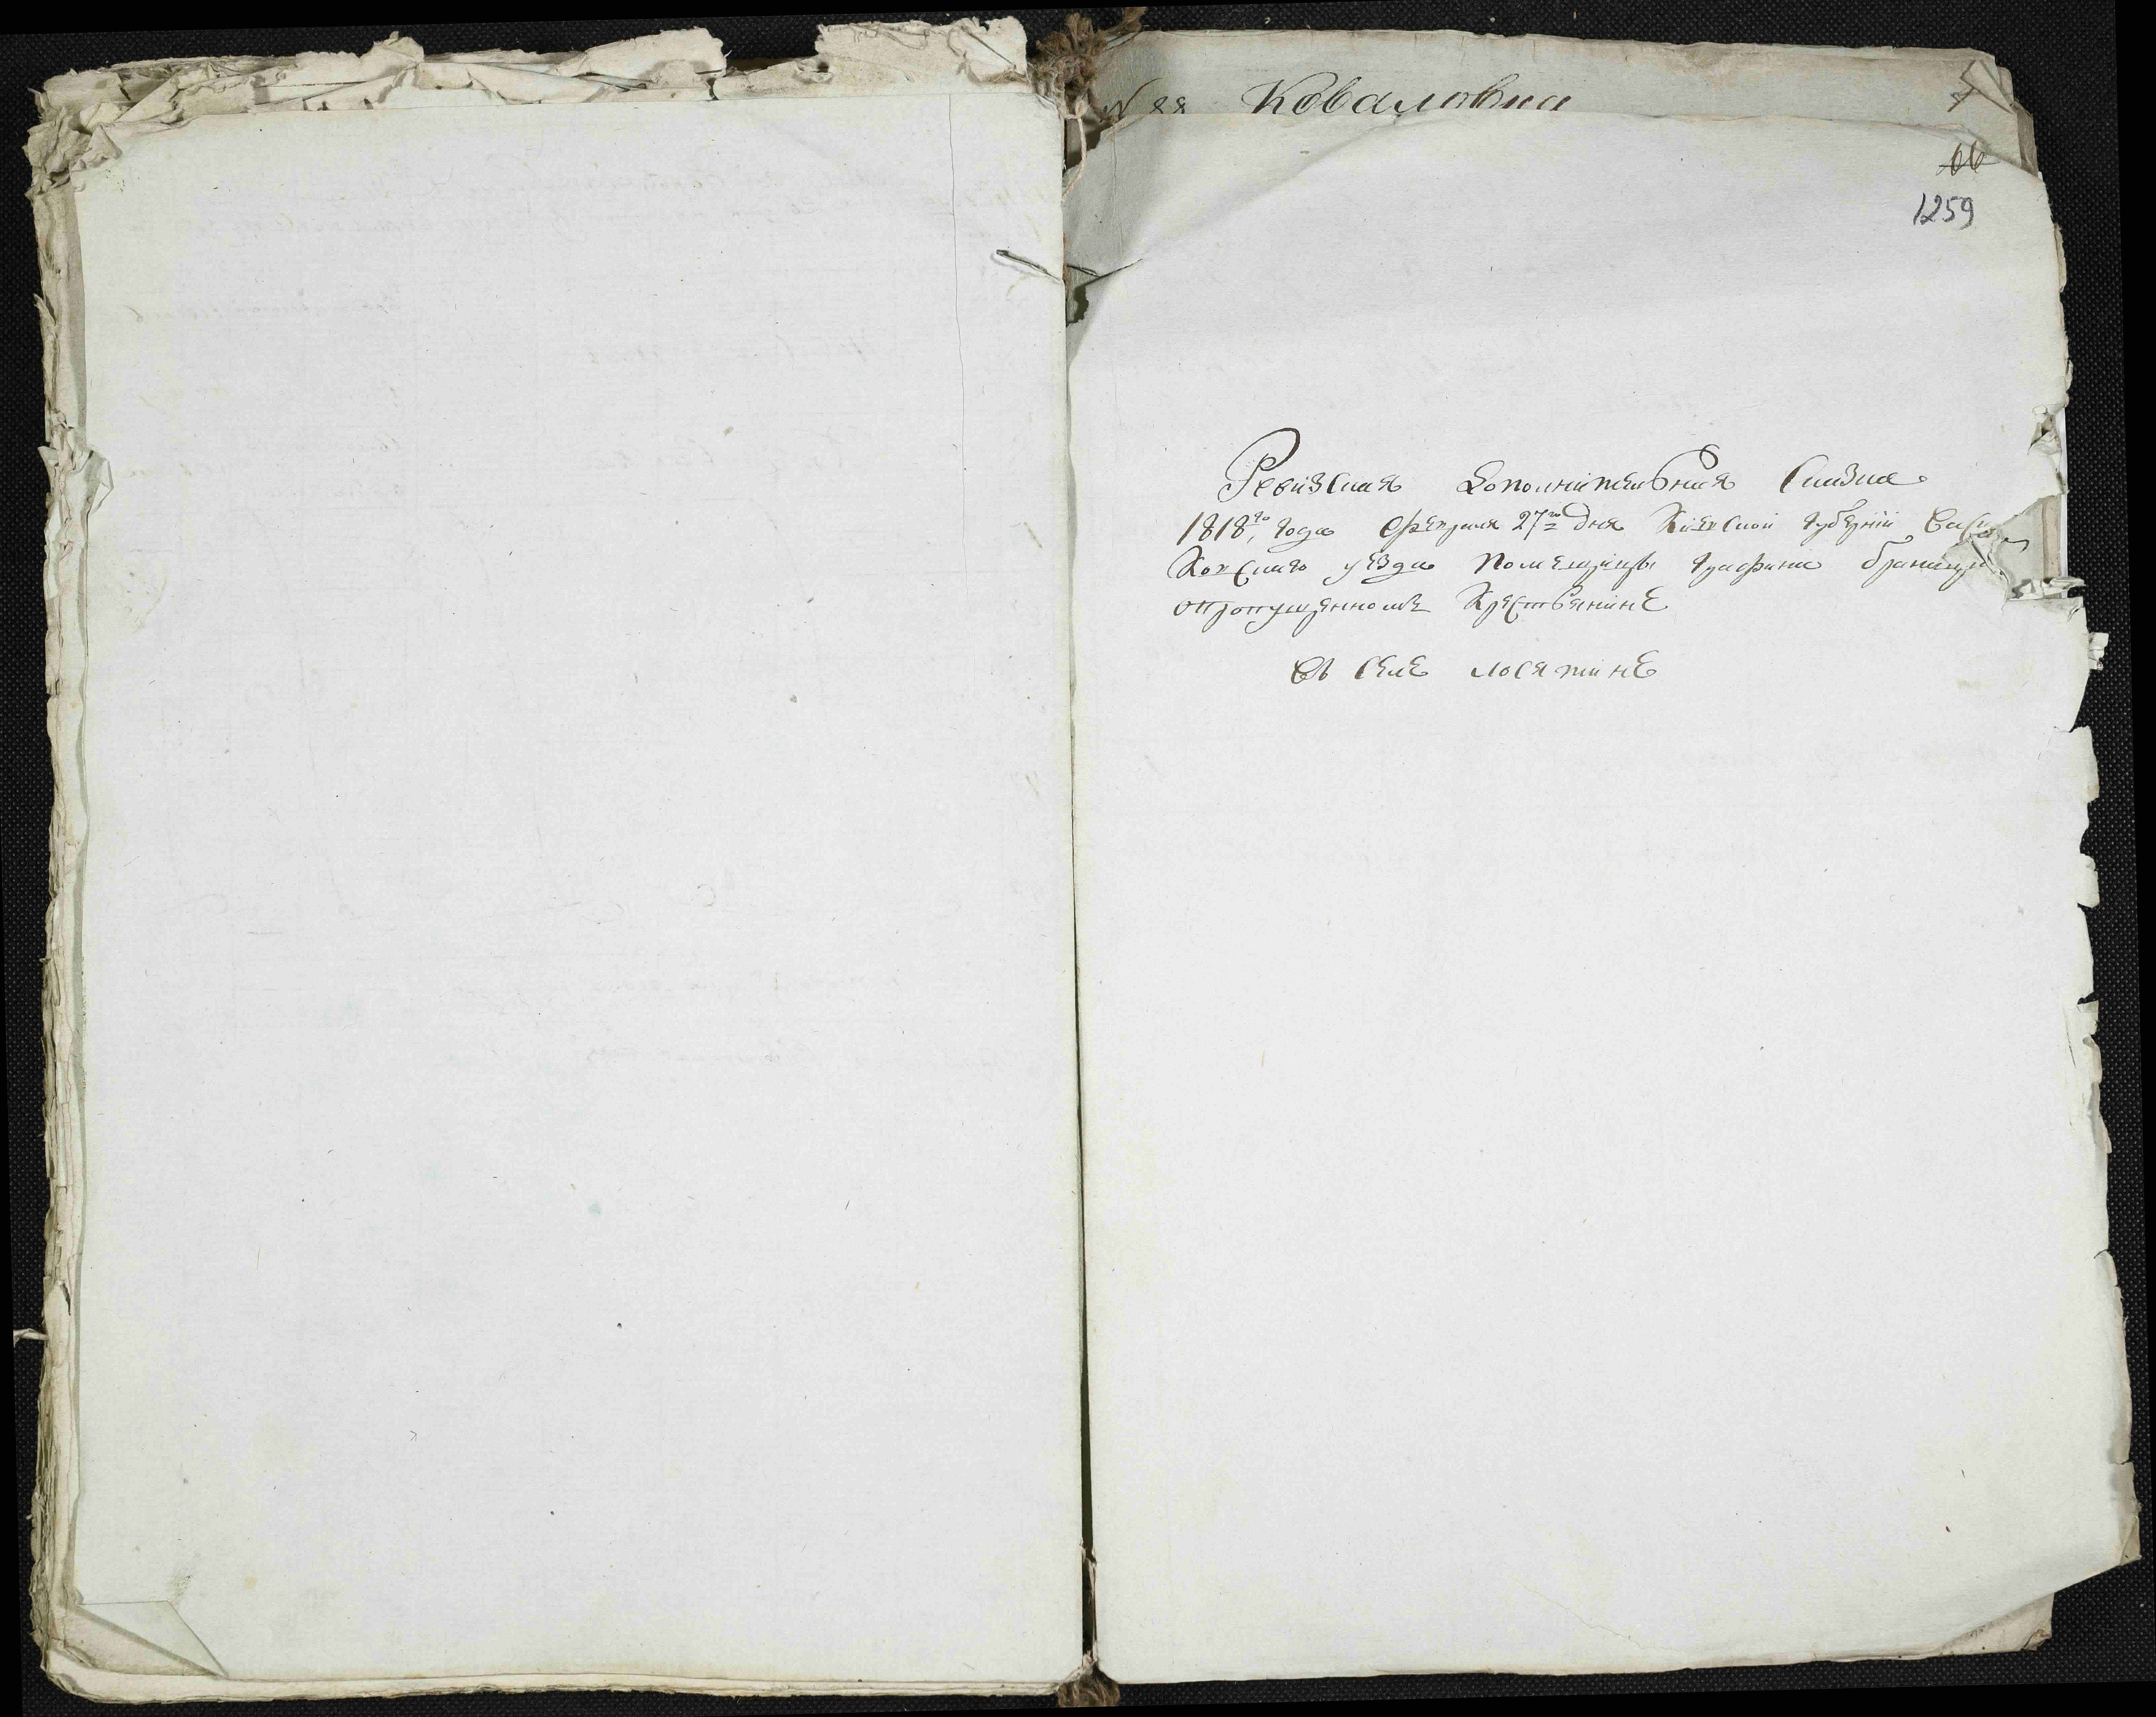 N 88 Ковалювка
66
1259
Ревизская дополнительная Сказка
1818го года февраля 27го дня Киевской губернии Васил
Ковскаго уезда Помещицы графини браницк
опропущенномъ Крестьянине
въ селе лосятине